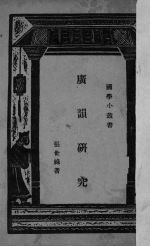 國學小叢書
廣韻研究
張世祿著